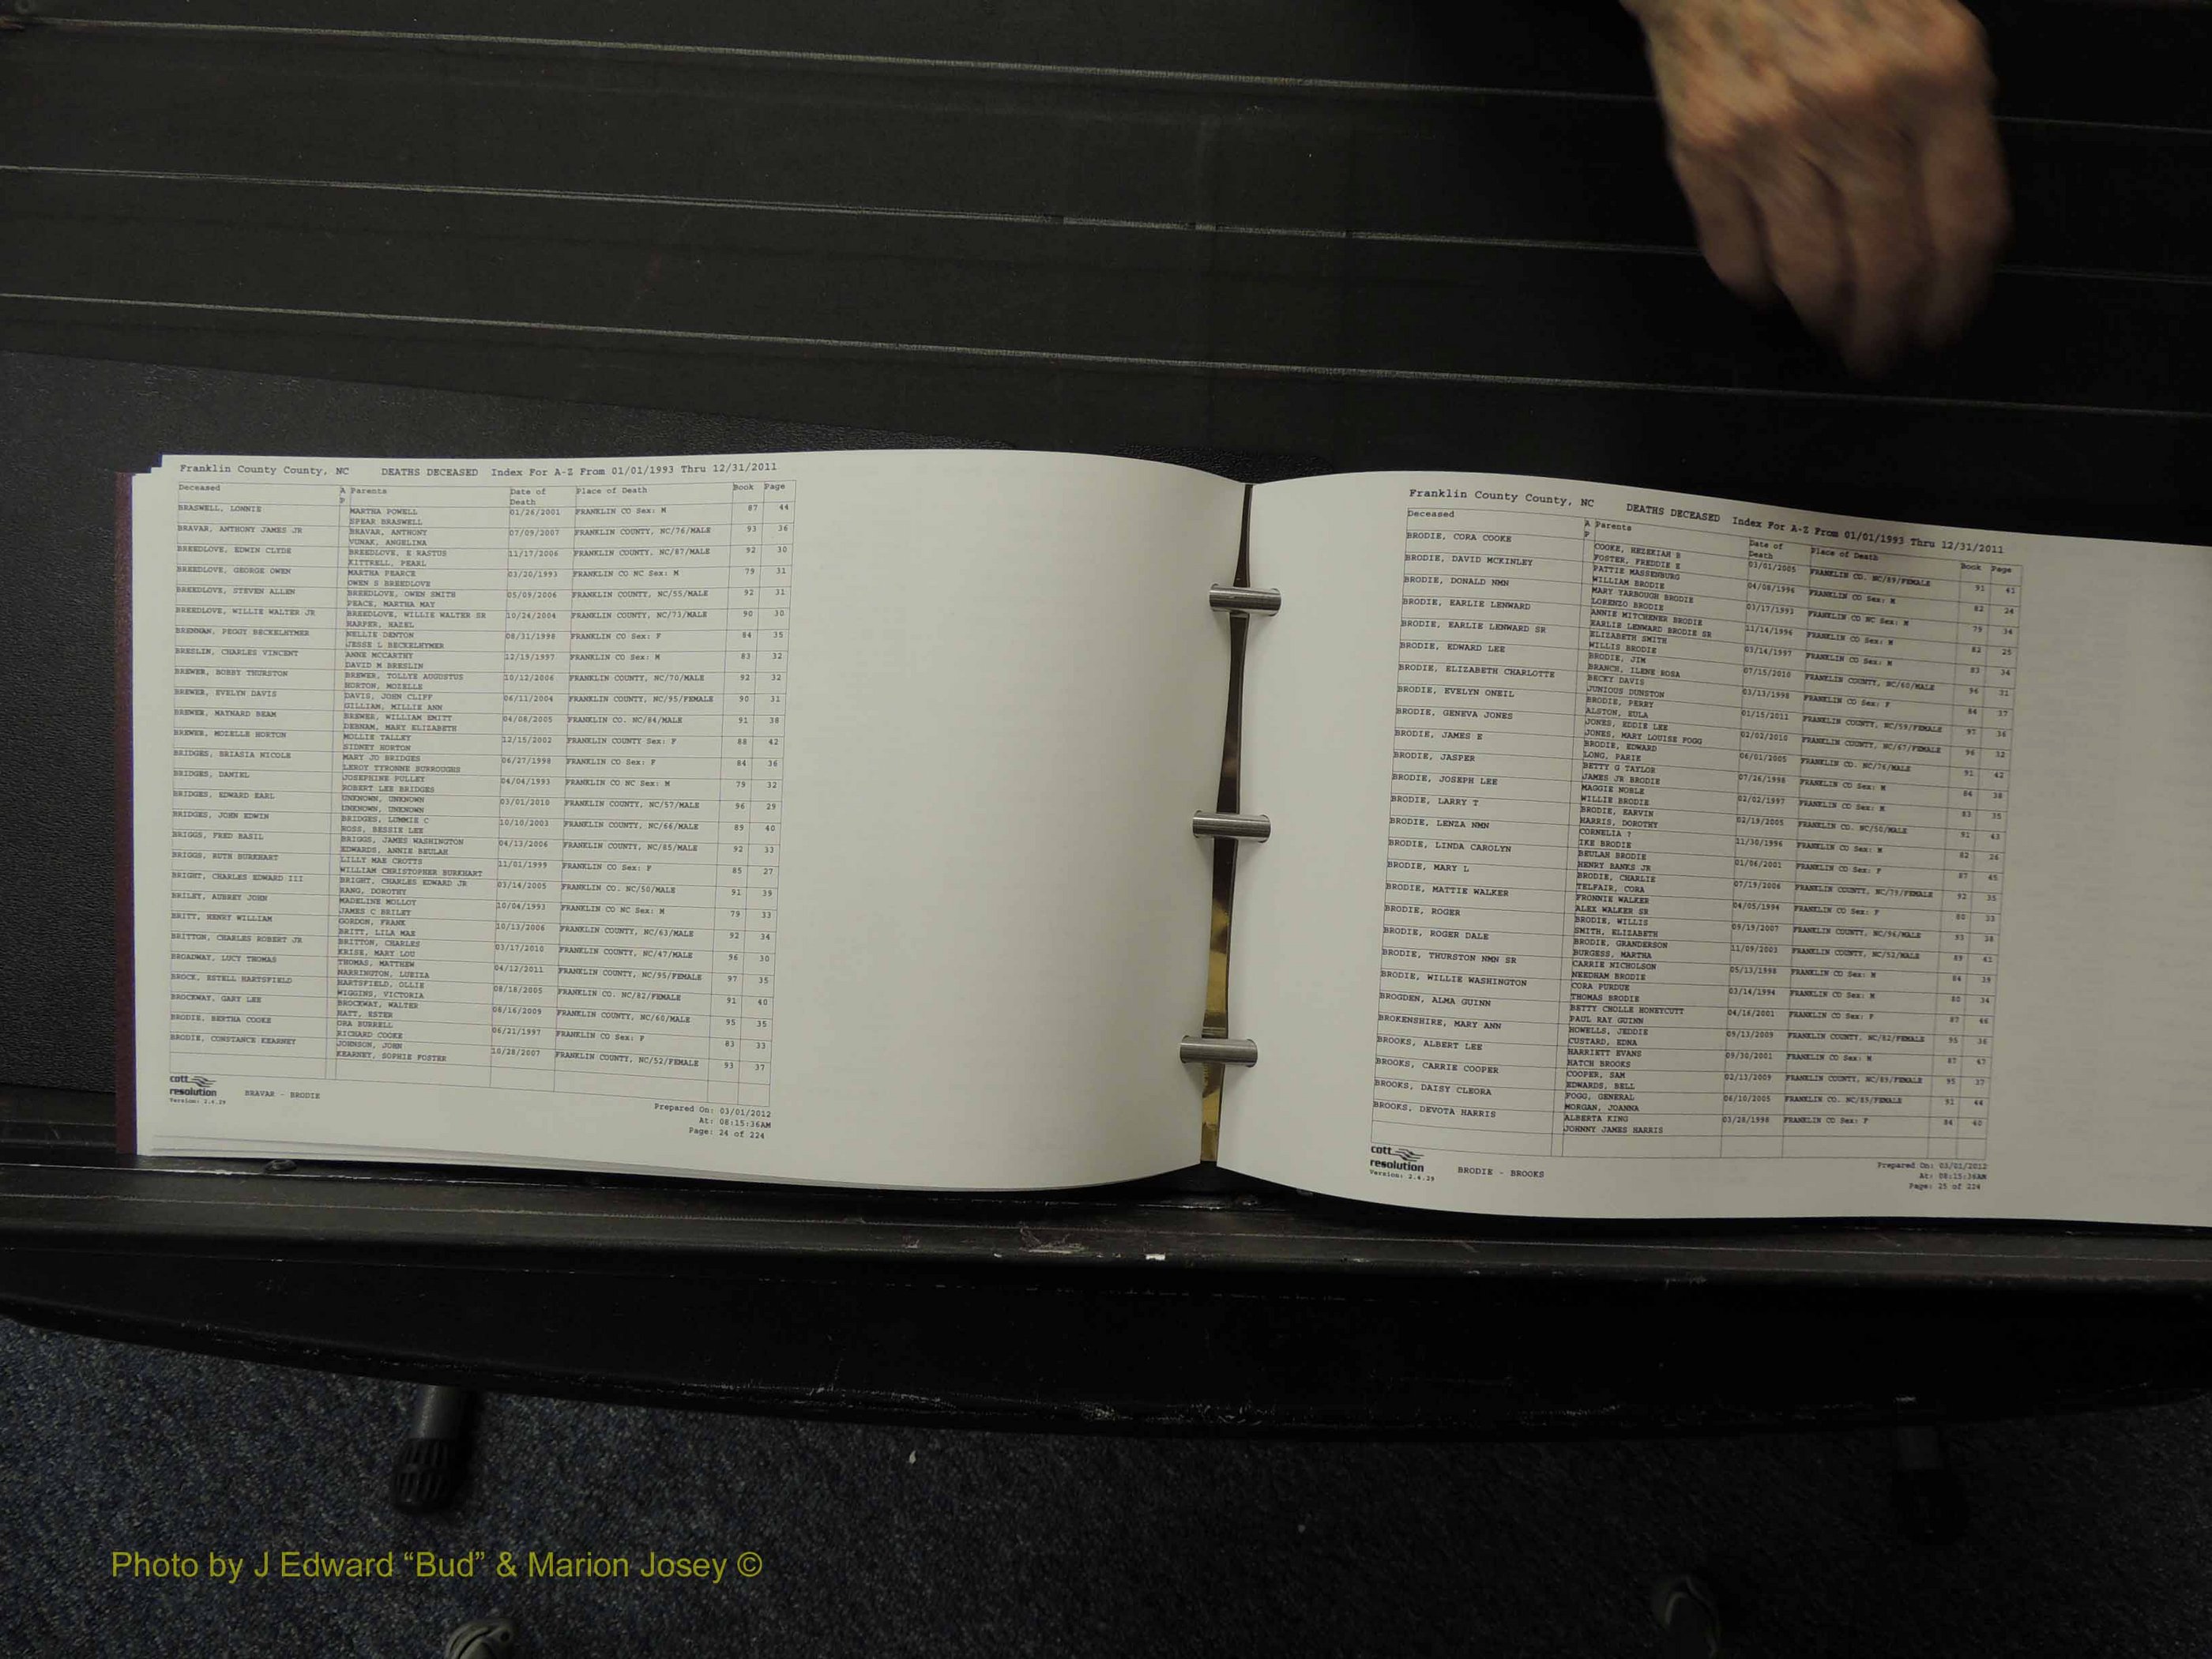 Franklin County County, NC DEATHS DECEASED Index For A-Z From 01/01/1993 Thru 12/31/2011
Deceased A Parents Date of Place of Death Book Page
P Death
BRASWELL, LONNIE MARTHA POWELL 01/26/2001 FRANKLIN CO Sex: M 87 44
SPEAR BRASWELL
BRAVAR, ANTHONY JAMES JR BRAVAR, ANTHONY 07/09/2007 FRANKLIN COUNTY, NC/76/MALE 93 36
VUNAK, ANGELINA
BREEDLOVE, EDWIN CLYDE BREEDLOVE, E RASTUS 11/17/2006 FRANKLIN COUNTY, NC/87/MALE 92 30
KITTRELL, PEARL
BREEDLOVE, GEORGE OWEN MARTHA PEARCE 03/20/1993 FRANKLIN CO NC Sex: M 79 31
OWEN S BREEDLOVE
BREEDLOVE, STEVEN ALLEN BREEDLOVE, OWEN SMITH 05/09/2006 FRANKLIN COUNTY, NC/55/MALE 92 31
PEACE, MARTHA MAY
BREEDLOVE, WILLIE WALTER JR BREEDLOVE, WILLIE WALTER SR 10/24/2004 FRANKLIN COUNTY, NC/73/MALE 90 30
HARPER, HAZEL
BRENNAN, PEGGY BECKELHYMER NELLIE DENTON 08/31/1998 FRANKLIN CO Sex: F 84 35
JESSE L BECKELHYMER
BRESLIN, CHARLES VINCENT ANNE MCCARTHY 12/19/1997 FRANKLIN CO Sex: M 83 32
DAVID M BRESLIN
BREWER, BOBBY THURSTON BREWER, TOLLYE AUGUSTUS 10/12/2006 FRANKLIN COUNTY, NC/70/MALE 92 32
HORTON, MOZELLE
BREWER, EVELYN DAVIS DAVIS, JOHN CLIFF 06/11/2004 FRANKLIN COUNTY, NC/95/FEMALE 90 31
GILLIAM, MILLIE ANN
BREWER, MAYNARD BEAM BREWER, WILLIAM EMITT 04/08/2005 FRANKLIN CO. NC/84/MALE 91 38
DEBNAM, MARY ELIZABETH
BREWER, MOZELLE HORTON MOLLIE TALLEY 12/15/2002 FRANKLIN COUNTY Sex: F 88 42
SIDNEY HORTON
BRIDGES, BRIASIA NICOLE MARY JO BRIDGES 06/27/1998 FRANKLIN CO Sex: F 84 36
LEROY TYRONNE BURROUGHS
BRIDGES, DANIEL JOSEPHINE PULLEY 04/04/1993 FRANKLIN CO NC Sex: M 79 32
ROBERT LEE BRIDGES
BRIDGES, EDWARD EARL UNKNOWN, UNKNOWN 03/01/2010 FRANKLIN COUNTY, NC/57/MALE 96 29
UNKNOWN, UNKNOWN
BRIDGES, JOHN EDWIN BRIDGES, LUMMIE C 10/10/2003 FRANKLIN COUNTY, NC/66/MALE 89 40
ROSS, BESSIE LEE
BRIGGS, FRED BASIL BRIGGS, JAMES WASHINGTON 04/13/2006 FRANKLIN COUNTY, NC/85/MALE 92 33
EDWARDS, ANNIE BEULAH
BRIGGS, RUTH BURKHART LILLY MAE CROTTS 11/01/1999 FRANKLIN CO Sex: F 85 27
WILLIAM CHRISTOPHER BURKHART
BRIGHT, CHARLES EDWARD III BRIGHT, CHARLES EDWARD JR 03/14/2005 FRANKLIN CO. NC/50/MALE 91 39
BANG, DOROTHY
BRILEY, AUBREY JOHN MADELINE MOLLOY 10/04/1993 FRANKLIN CO NC Sex: M 79 33
JAMES C BRILEY
BRITT, HENRY WILLIAM GORDON, FRANK 10/13/2006 FRANKLIN COUNTY, NC/63/MALE 92 34
BRITT, LILA MAE
BRITTON, CHARLES ROBERT JR BRITTON, CHARLES 03/17/2010 FRANKLIN COUNTY, NC/47/MALE 96 30
KRISE, MARY LOU
BROADWAY, LUCY THOMAS THOMAS, MATTHEW 04/12/2011 FRANKLIN COUNTY, NC/95/FEMALE 97 35
HARRINGTON, LUEIZA
BROCK, ESTELL HARTSFIELD HARTSFIELD, OLLIE 08/18/2005 FRANKLIN CO. NC/82/FEMALE 91 40
WIGGINS, VICTORIA
BROCKWAY, GARY LEE BROCKWAY, WALTER 08/16/2009 FRANKLIN COUNTY, NC/60/MALE 95 35
HATT, ESTER
BRODIE, BERTHA COOKE ORA BURRELL 06/21/1997 FRANKLIN CO Sex: F 83 33
RICHARD COOKE
BRODIE, CONSTANCE KEARNEY JOHNSON, JOHN 10/28/2007 FRANKLIN COUNTY, NC/52/FEMALE 93 37
KEARNEY, SOPHIE FOSTER
cott
resolution BRAVAR - BRODIE
Version: 2.4.29
Prepared On: 03/01/2012
At: 08:15:36AM
Page: 24 of 224
Franklin County County, NC DEATHS DECEASED Index For A-Z From 01/01/1993 Thru 12/31/2011
Deceased A Parents Date of Place of Death Book Page
P Death
BRODIE, CORA COOKE COOKE, HEZEKIAH B 03/01/2005 FRANKLIN CO. NC/89/FEMALE 91 41
FOSTER, FREDDIE E
BRODIE, DAVID MCKINLEY PATTIE MASSENBURG 04/08/1996 FRANKLIN CO Sex: M 82 24
WILLIAM BRODIE
BRODIE, DONALD NMN MARY YARBOUGH BRODIE 03/17/1993 FRANKLIN CO NC Sex: M 79 34
LORENZO BRODIE
BRODIE, EARLIE LENWARD ANNIE MITCHENER BRODIE 11/14/1996 FRANKLIN CO Sex: M 82 25
EARLIE LENWARD BRODIE SR
BRODIE, EARLIE LENWARD SR ELIZABETH SMITH 03/14/1997 FRANKLIN CO Sex: M 83 34
WILLIS BRODIE
BRODIE, EDWARD LEE BRODIE, JIM 07/15/2010 FRANKLIN COUNTY, NC/60/MALE 96 31
BRANCH, ILENE ROSA
BRODIE, ELIZABETH CHARLOTTE BECKY DAVIS 03/13/1998 FRANKLIN CO Sex: F 84 37
JUNIOUS DUNSTON
BRODIE, EVELYN ONEIL BRODIE, PERRY 01/15/2011 FRANKLIN COUNTY, NC/59/FEMALE 97 36
ALSTON, EULA
BRODIE, GENEVA JONES JONES, EDDIE LEE 02/02/2010 FRANKLIN COUNTY, NC/67/FEMALE 96 32
JONES, MARY LOUISE FOGG
BRODIE, JAMES E BRODIE, EDWARD 06/01/2005 FRANKLIN CO. NC/76/MALE 91 42
LONG, PARIE
BRODIE, JASPER BETTY G TAYLOR 07/26/1998 FRANKLIN CO Sex: M 84 38
JAMES JR BRODIE
BRODIE, JOSEPH LEE MAGGIE NOBLE 02/02/1997 FRANKLIN CO Sex: M 83 35
WILLIE BRODIE
BRODIE, LARRY T BRODIE, EARVIN 02/19/2005 FRANKLIN CO. NC/50/MALE 91 43
HARRIS, DOROTHY
BRODIE, LENZA NMN CORNELIA ? 11/30/1996 FRANKLIN CO Sex: M 82 26
IKE BRODIE
BRODIE, LINDA CAROLYN BEULAH BRODIE 01/06/2001 FRANKLIN CO Sex: F 87 45
HENRY BANKS JR
BRODIE, MARY L BRODIE, CHARLIE 07/19/2006 FRANKLIN COUNTY, NC/79/FEMALE 92 35
TELFAIR, CORA
BRODIE, MATTIE WALKER FRONNIE WALKER 04/05/1994 FRANKLIN CO Sex: F 80 33
ALEX WALKER SR
BRODIE, ROGER BRODIE, WILLIS 09/19/2007 FRANKLIN COUNTY, NC/96/MALE 93 38
SMITH, ELIZABETH
BRODIE, ROGER DALE BRODIE, GRANDERSON 11/09/2003 FRANKLIN COUNTY, NC/52/MALE 89 41
BURGESS, MARTHA
BRODIE, THURSTON NMN SR CARRIE NICHOLSON 05/13/1998 FRANKLIN CO Sex: M 84 39
NEEDHAM BRODIE
BRODIE, WILLIE WASHINGTON CORA PURDUE 03/14/1994 FRANKLIN CO Sex: M 80 34
THOMAS BRODIE
BROGDEN, ALMA GUINN BETTY CHOLLE HONEYCUTT 04/16/2001 FRANKLIN CO Sex: F 87 46
PAUL RAY GUINN
BROKENSHIRE, MARY ANN HOWELLS, JEDDIE 09/13/2009 FRANKLIN COUNTY, NC/82/FEMALE 95 36
CUSTARD, EDNA
BROOKS, ALBERT LEE HARRIETT EVANS 09/30/2001 FRANKLIN CO Sex: M 87 47
HATCH BROOKS
BROOKS, CARRIE COOPER COOPER, SAM 02/13/2009 FRANKLIN COUNTY, NC/89/FEMALE 95 37
EDWARDS, BELL
BROOKS, DAISY CLEORA FOGG, GENERAL 06/10/2005 FRANKLIN CO. NC/85/FEMALE 91 44
MORGAN, JOANNA
BROOKS, DEVOTA HARRIS ALBERTA KING 03/28/1998 FRANKLIN CO Sex: F 84 40
JOHNNY JAMES HARRIS
cott
resolution BRODIE - BROOKS
Version: 2.4.29
Prepared On: 03/01/2012
At: 08:15:36AM
Page: 25 of 224
Photo by J Edward “Bud” & Marion Josey ©